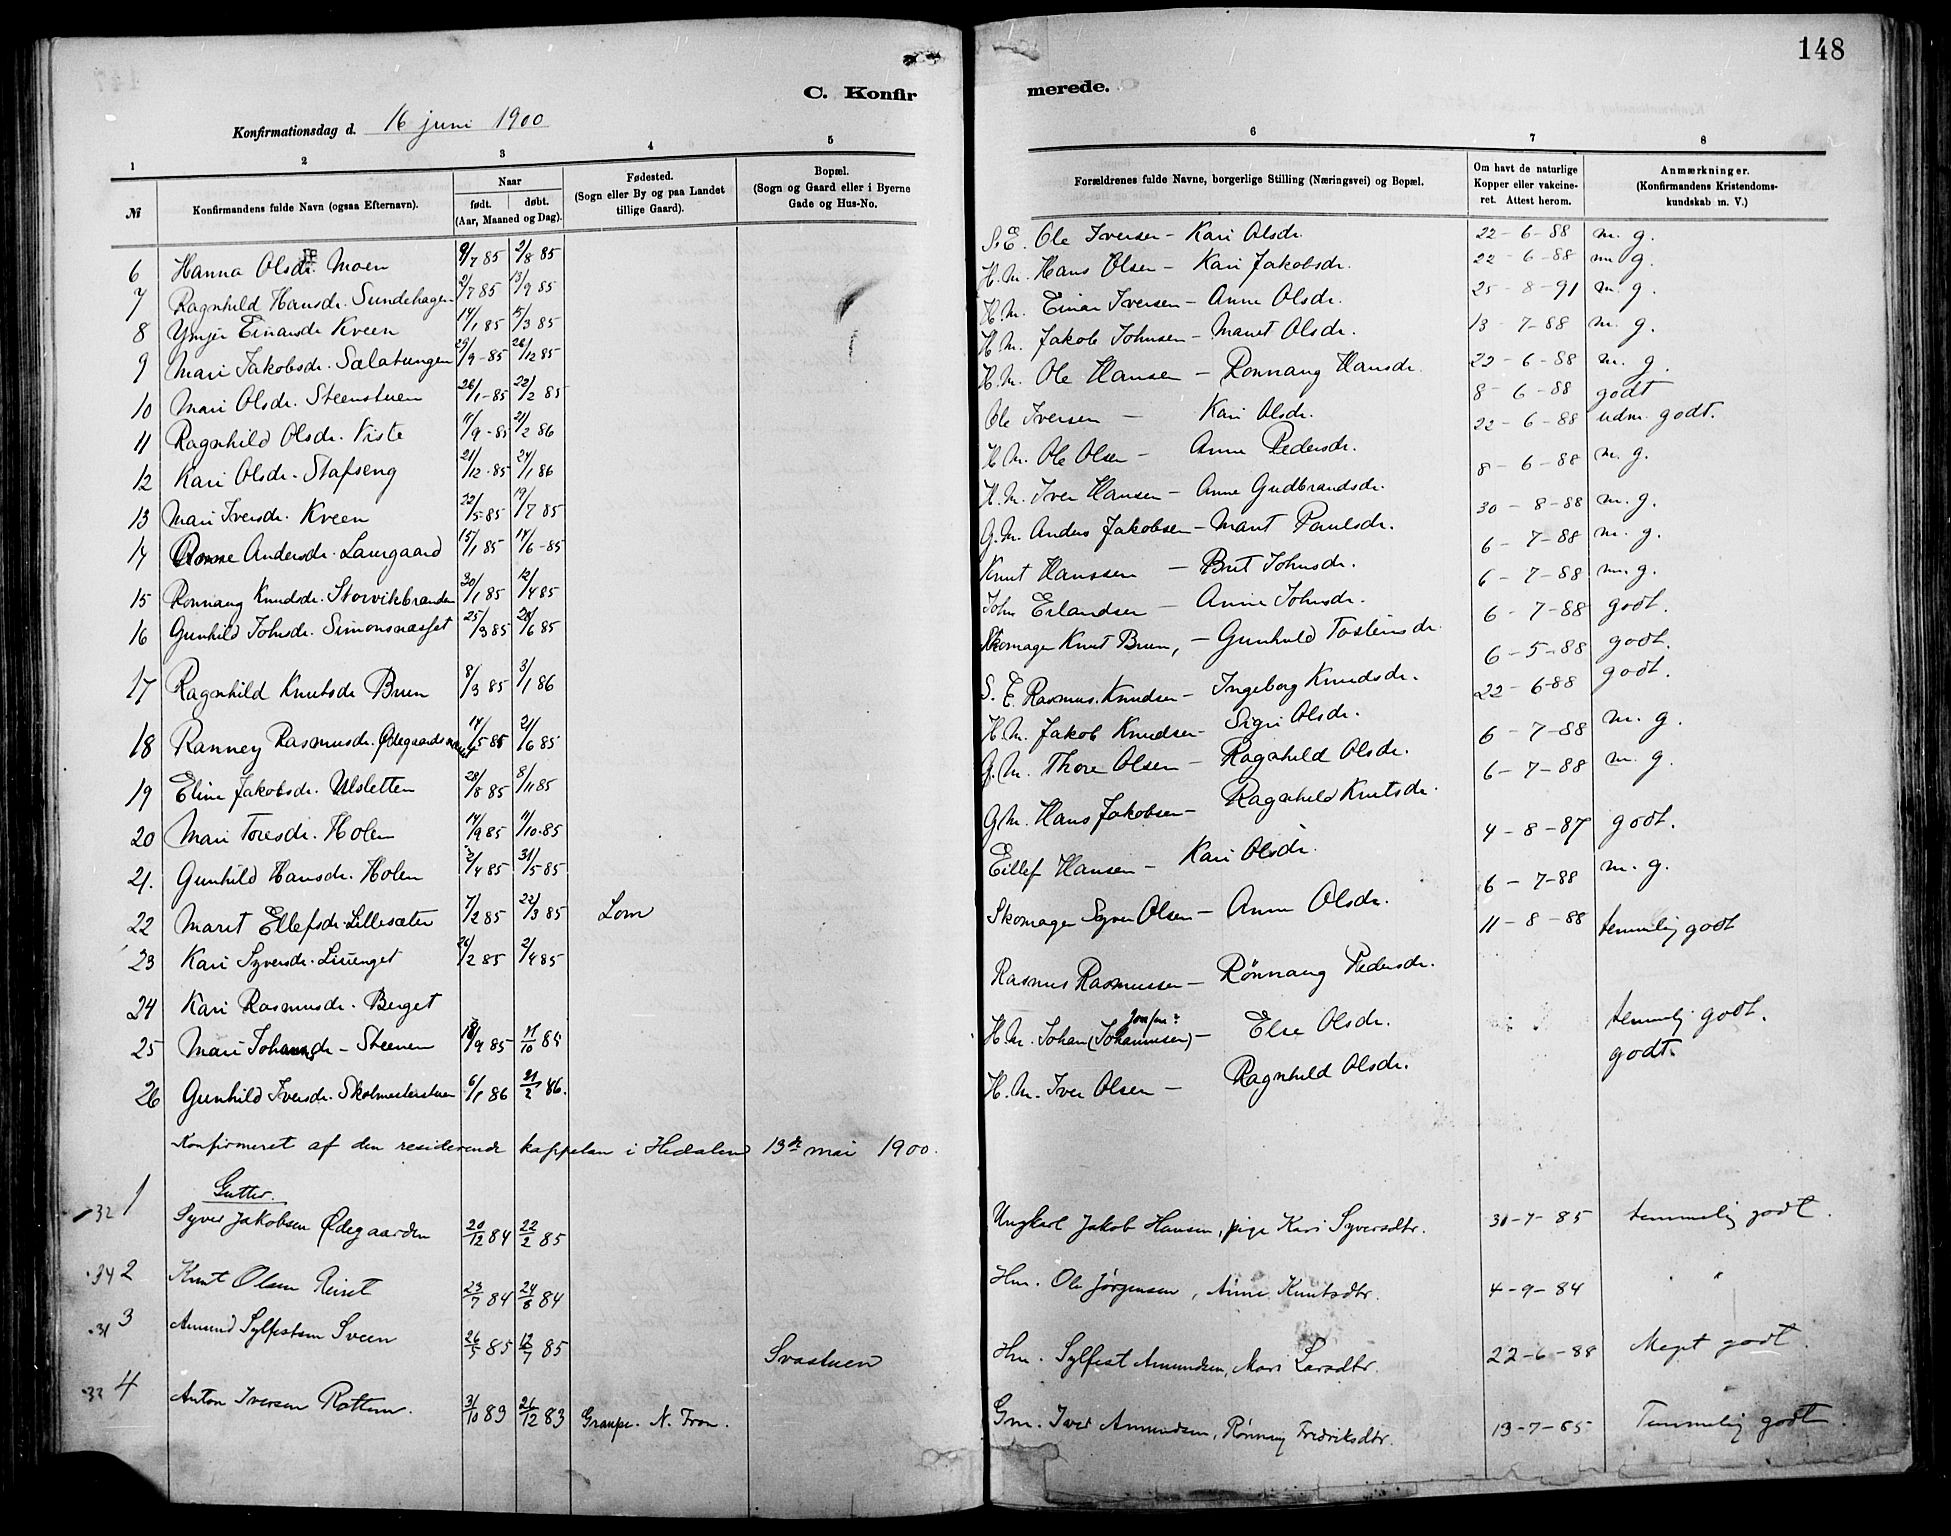 148
C. Konfirmerede.
Konfirmationsdag d. 16 juni 1900
1 2 3 4 5 6 7 8
№ Konfirmandens fulde Navn (ogsaa Efternavn). Naar født. døbt. (Aar, Maaned og Dag). Fødested. (Sogn eller By og paa Landet tillige Gaard). Bopæl. (Sogn og Gaard eller i Byerne Gade og Hus-No. Forældrenes fulde Navne, borgerlige Stilling (Næringsvei) og Bopæl. Om havt de naturlige Kopper eller vakcineret. Attest herom. Anmærkninger. (Konfirmandens Kristendomskundskab m. V.)
6 Hanna Olsdr. Moen 9/7 85 2/8 85 S.E. Ole Iversen - Kari Olsdr. 22-6-88 m. g.
7 Ragnhild Hansdr. Sundehagen 2/7 85 13/9 85 H.M. Hans Olsen - Kari Jakobsdr. 22-6-88 m g.
8 Yngjer Einarsdr Kveen 14/1 85 15/3 85 H.M. Einar Iversen - Anne Olsdr. 25-8-91 m. g.
9 Mari Jakobsdr. Sælatungen 29/9-85 26/12 85 H.M. Jakob Johnsen - Marit Olsdr. 13-7-88 m. g.
10 Mari Olsdr. Steenstuen 26/1-85 22/2 85 H.M. Ole Hansen - Rønnaug Hansdr. 22-6-88 m. g.
11 Ragnhild Olsdr. Viste 11/9-85 21/2 86 Ole Iversen - Kari Olsdr. 8-6-88 godt
12 Kari Olsdr. Stafseng 21/12-85 24/1 86 H.M. Ole Olsen - Anne Pedersdr. 22-6-88 udm. godt.
13 Mari Iversdr. Kveen 22/5-85 19/7 85 H.M. Iver Hansen - Anne Gudbrandsdr. 8-6-88 m. g.
14 Anne Andersdr. Laurgaard 15/1 85 14/6-85 G.M. Anders Jakobsen - Marit Paulsdr. 30-8-88 m. g.
15 Rønnaug Knudsdr. Storvikbranden 30/1 85 12/4 85 Knut Hanssen - Brit Johnsdr. 6-7-88 m. g.
16 Gunhild Johnsdr. Simonsnæsset 25/3 85 28/6 85 John Erlandsen - Anne Johnsdr. 6-7-88 m. g.
17 Ragnhild Knutsdr Bruen 8/3 85 3/1 86 Skomager Knut Bruen, - Gunhild Tosteinsdr 6-7-88 godt.
18 Ranney Rasmusdr. Ødegaardsnæsset 14/5 85 21/6 85 S.E. Rasmus Knudsen - Ingeborg Knudsdr. 6-5-88 godt.
19 Eline Jakobsdr. Ulsletten 28/8 85 8/11 85 H.M. Jakob Knudsen - Sigri Olsdr. 22-6-88 godt.
20 Mari Toresdr. Holen 14/9 85 11/10-85 G.M. Thore Olsen - Ragnhild Olsdr. 6-7-88 m. g.
21. Gunhild Hansdr. Holen 2/4 85 31/5-85 G.M. Hans Jakobsen - Ragnhild Knutsdr. 6-7-88 m. g.
22 Marit Ellefsdr. Lillesæter 7/2 85 22/3 85 Lom Eillef Hansen - Kari Olsdr. 4-8-87 godt.
23 Kari Syversdr. Liienget 24/2 85 2/4 85 Skomager Syver Olsen - Anne Olsdr. 6-7-88 m. g.
24 Kari Rasmusdr. Berget Rasmus Rasmussen - Rønnaug Pedersdr. 11-8-88 temmelig godt
25 Mari Johansdr - Steenen 18/9 85 11/10 85 H.M. Johan (Johannesen) - Else Olsdr. temmelig godt.
26 Gunhild Iversdr. Skolmesterstuen 6/1 86 21/2 86. H.M. Iver Olsen - Ragnhild Olsdr. godt.
Konfirmeret af den residerende kappelan i Hedalen 13de mai 1900.
Gutter.
32 1 Syver Jakobsen Ødegaarden 20/12 84 22/2 85 Ungkarl Jakob Hansen, pige Kari Syversdtr. 31-7-85 temmelig godt.
34 2 Knut Olsen Reiret 23/7 84 24/8 84 Hm. Ole Jörgensen, Anne Knutsdtr. 4-9-84 "
31 3 Amund Sylfestsen Sveen 26/5 85 12/7 85 Svastuen Hm. Sylfest Amundsen, Mari Larsdtr. 22-6-88 Meget godt.
33 4 Anton Iversen Rottem. 31/10 83 26/12 83 Graupe. N. Fron. Gm. Iver Amundsen, Rønnoug Fredriksdtr. 13-7-85 Temmelig godt.